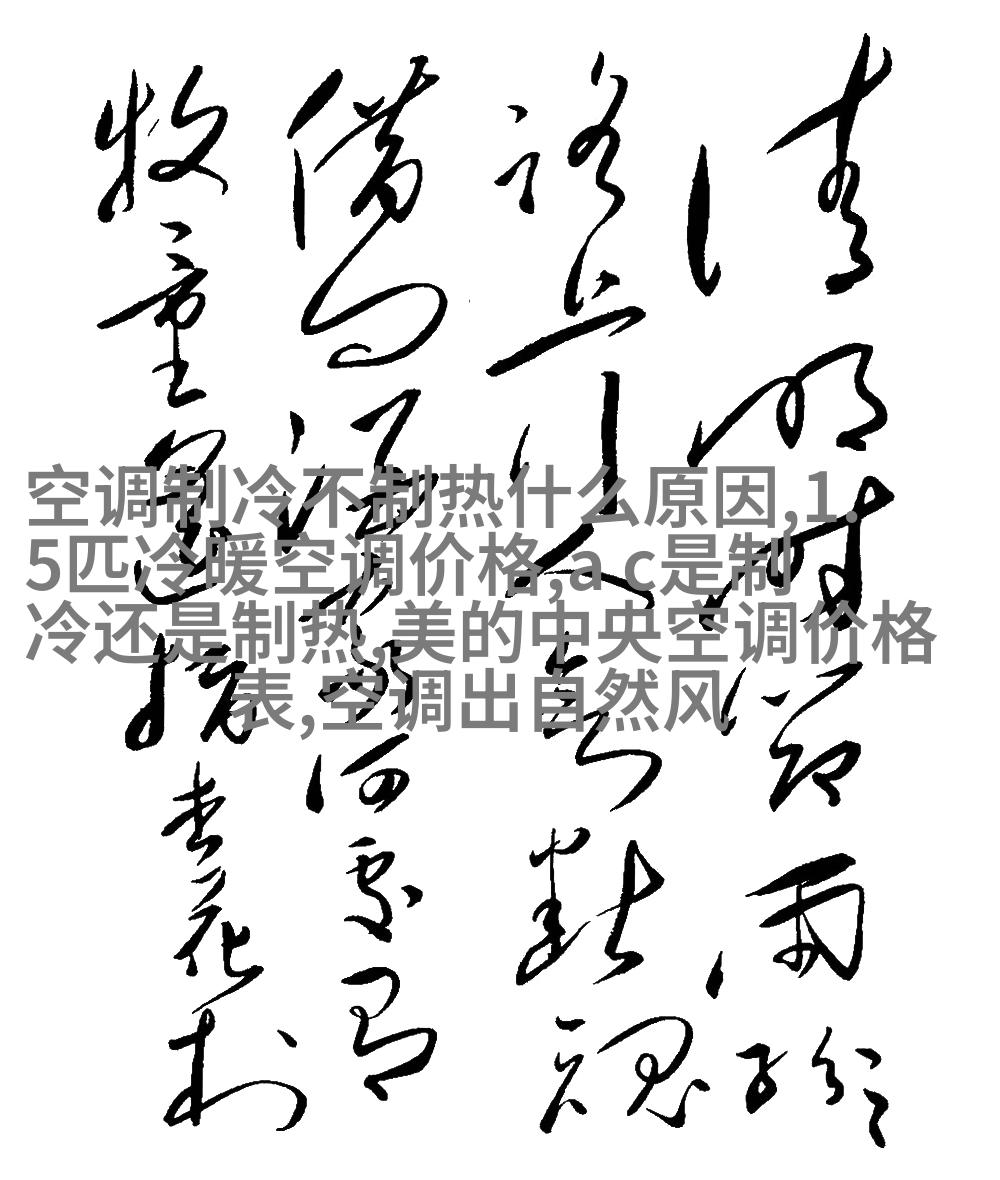 清明时节雨纷纷
路上行人欲断魂
借问酒家何处有
牧童遥指杏花村
空调制冷不制热什么原因,1.
5匹冷暖空调价格,a c是制
冷还是制热,美的中央空调价格
表,空调出自然风